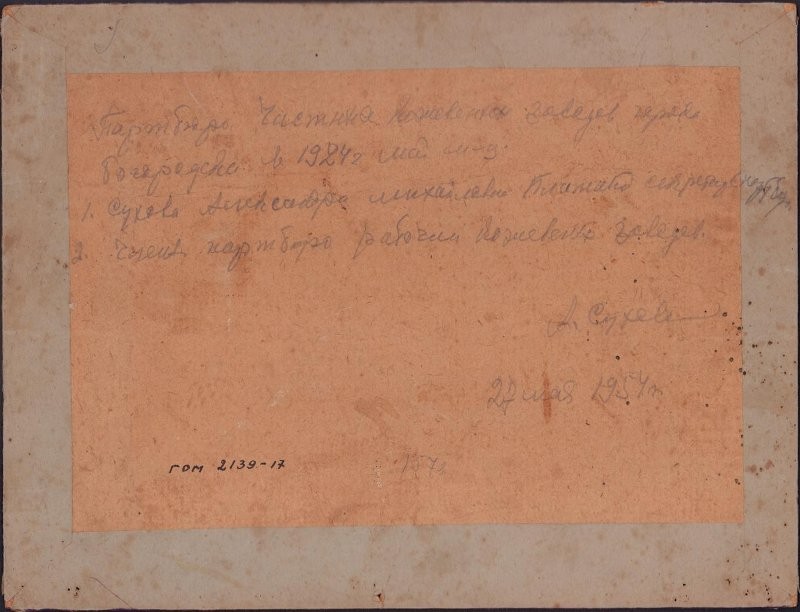 Партбюро Частных кожевенных заводов города
Богородска в 1924г май м-ц.
1. Сухова Александра Михайловна секретарь
2. Члены партбюро рабочии кожевенных заводов.
А. Сухова
27 мая 1954г
гом 2139-17